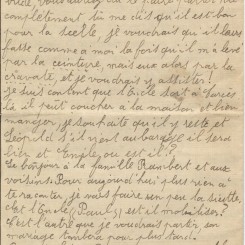 complètement tu me dis qu'il est bon
pour la selle, je voudrais qu'il leurs
fasse comme a moi la fois qu'il m'a levé
par la ceinture, mais eux alors par la
cravate, et je voudrais y assister!
je suis content que l'Oncle soit à
de il peut coucher a la maison et bien
manger, je souhaite qu'il y reste et
Léopold s'il y est aubergé il sera
bien et Emilou est il?
Le bonjour à la famille Rambert et aux
voisins. Pour aujourd'hui plus rien à
te raconter, je vais faire un peu la sieste.
et l'Oncle Paul est il mobilisé?
C'est l'autre que je voudrais partir, son
mariage tombera pour plus tard.